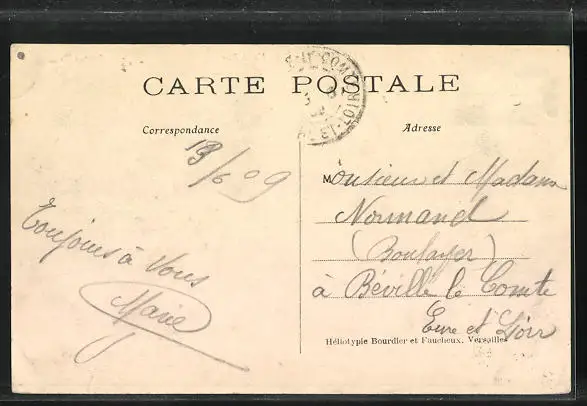 CARTE POSTALE
Correspondance
Adresse
19/6 09
Toujours à Vous
Marie
Monsieur et Madame
Normand
(Boulanger)
à Béville le Comte
Eure et Loir
Héliotypie Bourdier et Faucheux, Versailles